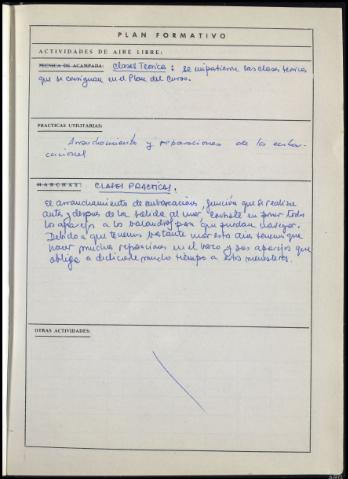 PLAN FORMATIVO
ACTIVIDADES DE AIRE LIBRE:
TECNICA DE ACAMPADA: Clases Teoricas: Se impartieron las clases teoricas
que se consignan en el Plan del Curso.
PRACTICAS UTILITARIAS:
Arranchamiento y reparaciones de las embar-
caciones
MARCHAS: CLASES PRACTICAS.
El arranchamiento de embarcaciones, función que se realiza
antes y despues de la salida al mar, consiste en poner todos
los aparejos a los balandros para que puedan navegar.
Debido a que tenemos bastante mar estos dias tenemos que
hacer muchas reparaciones en el barco y sus aparejos que
obliga a dedicarle mucho tiempo a estos menesteres.
OTRAS ACTIVIDADES: